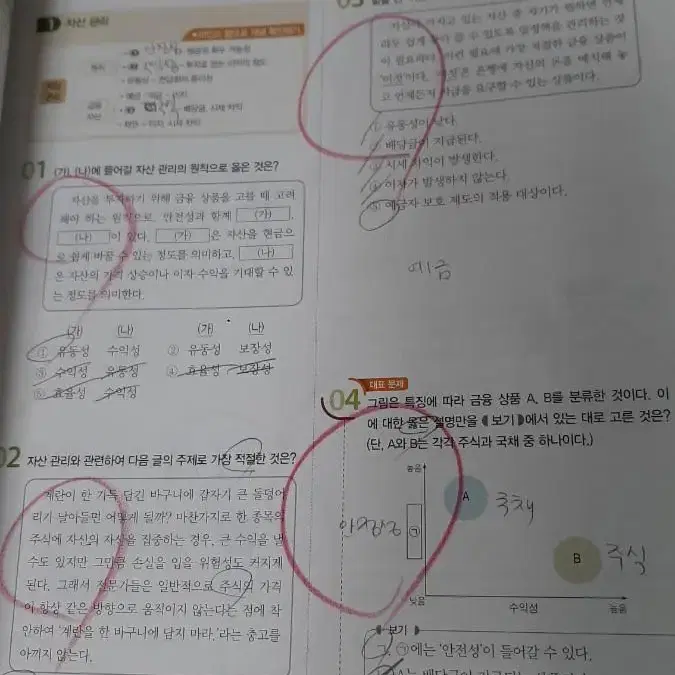 1 자산 관리
01 (가), (나)에 들어갈 자산 관리의 원칙으로 옳은 것은?
자산을 투자하기 위해 금융 상품을 고를 때 고려
해야 하는 원칙으로, 안전성과 함께 (가),
(나)이 있다. (가)은 자산을 현금으
로 쉽게 바꿀 수 있는 정도를 의미하고, (나)
은 자산의 가격 상승이나 이자 수익을 기대할 수 있
는 정도를 의미한다.
(가) (나) (가) (나)
① 유동성 수익성 ② 유동성 보장성
③ 수익성 유동성 ④ 효율성 보장성
⑤ 효율성 수익성
02 자산 관리와 관련하여 다음 글의 주제로 가장 적절한 것은?
계란이 한 가득 담긴 바구니에 갑자기 큰 돌덩어
리가 날아들면 어떻게 될까? 마찬가지로 한 종목의
주식에 자신의 자산을 집중하는 경우, 큰 수익을 낼
수도 있지만 그만큼 손실을 입을 위험성도 커지게
된다. 그래서 전문가들은 일반적으로 주식의 가격
이 항상 같은 방향으로 움직이지 않는다는 점에 착
안하여 '계란을 한 바구니에 담지 마라.'라는 충고를
아끼지 않는다.
이 필요하다. 이런 필요에 가장 적절한 금융 상품이
'이것'이다. 이것은 은행에 자신의 돈을 예치해 놓
고 언제든지 자금을 요구할 수 있는 상품이다.
① 유동성이 낮다.
② 배당금이 지급된다.
③ 시세 차익이 발생한다.
④ 이자가 발생하지 않는다.
⑤ 예금자 보호 제도의 적용 대상이다.
예금
대표 문제
04 그림은 특징에 따라 금융 상품 A, B를 분류한 것이다. 이
에 대한 옳은 설명만을 보기에서 있는 대로 고른 것은?
(단, A와 B는 각각 주식과 국채 중 하나이다.)
높음
A 국채
안정성 ㉠
B 주식
낮음 수익성 높음
보기
ㄱ. ㉠에는 '안전성'이 들어갈 수 있다.